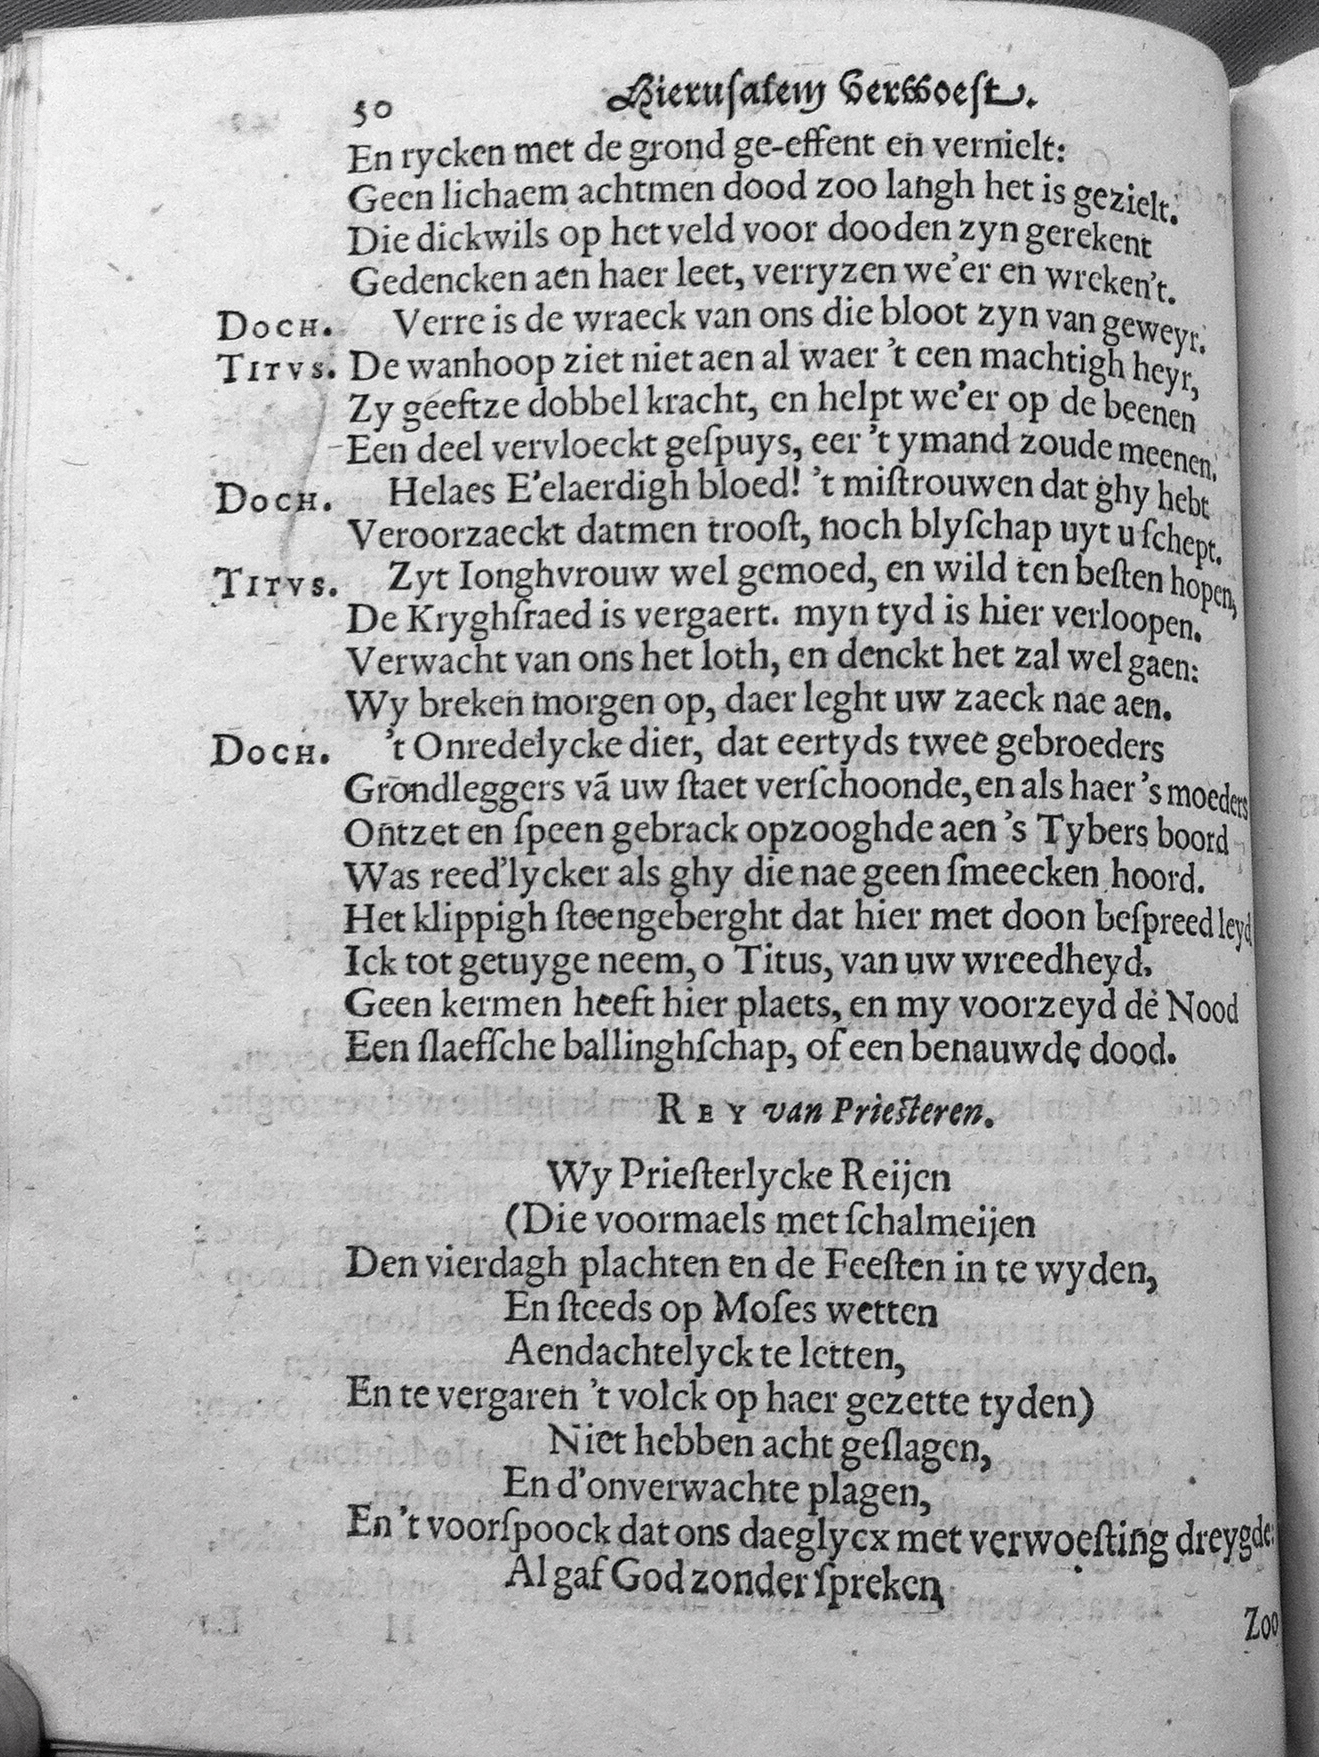 50 Hierusalem Verwoest.
En rycken met de grond ge-effent en vernielt:
Geen lichaem achtmen dood zoo langh het is gezielt.
Die dickwils op het veld voor dooden zyn gerekent
Gedencken aen haer leet, verryzen we'er en wreken't.
DOCH. Verre is de wraeck van ons die bloot zyn van geweyr.
TITVS. De wanhoop ziet niet aen al waer 't een machtigh heyr,
Zy geeftze dobbel kracht, en helpt we'er op de beenen
Een deel vervloeckt geſpuys, eer 't ymand zoude meenen.
DOCH. Helaes E'elaerdigh bloed! 't miſtrouwen dat ghy hebt
Veroorzaeckt datmen trooſt, noch blyſchap uyt u ſchept.
TITVS. Zyt Ionghvrouw wel gemoed, en wild ten beſten hopen,
De Kryghſraed is vergaert. myn tyd is hier verloopen.
Verwacht van ons het loth, en denckt het zal wel gaen:
Wy breken morgen op, daer leght uw zaeck nae aen.
DOCH. 't Onredelycke dier, dat eertyds twee gebroeders
Grondleggers vã uw ſtaet verſchoonde, en als haer 's moeders
Ontzet en ſpeen gebrack opzooghde aen 's Tybers boord
Was reed'lycker als ghy die nae geen ſmeecken hoord.
Het klippigh ſteengeberght dat hier met doon beſpreed leyd
Ick tot getuyge neem, o Titus, van uw wreedheyd.
Geen kermen heeft hier plaets, en my voorzeyd de Nood
Een ſlaefſche ballinghſchap, of een benauwde dood.
REY van Prieſteren.
Wy Prieſterlycke Reijen
(Die voormaels met ſchalmeijen
Den vierdagh plachten en de Feeſten in te wyden,
En ſteeds op Moſes wetten
Aendachtelyck te letten,
En te vergaren 't volck op haer gezette tyden)
Niet hebben acht geſlagen,
En d'onverwachte plagen,
En 't voorſpoock dat ons daeglycx met verwoeſting dreygde:
Al gaf God zonder ſpreken,
Zoo